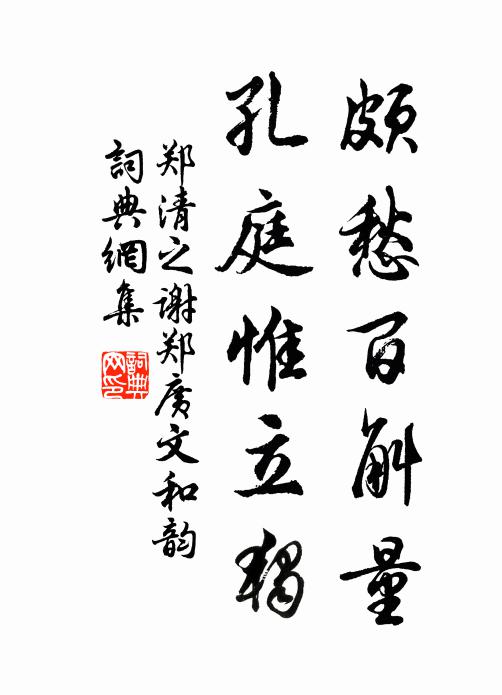 颇愁百斛量
孔庭惟立独
郑清之谢郑广文和韵
词典網集
詞典網印